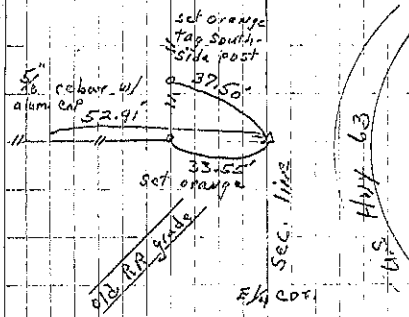 set orange
tag South-
side post
37.50'
5/8" rebar w/
alum cap
52.91'
33.55'
set orange
old RR grade
Sec. line
E/4 cor.
U.S. Hwy 63